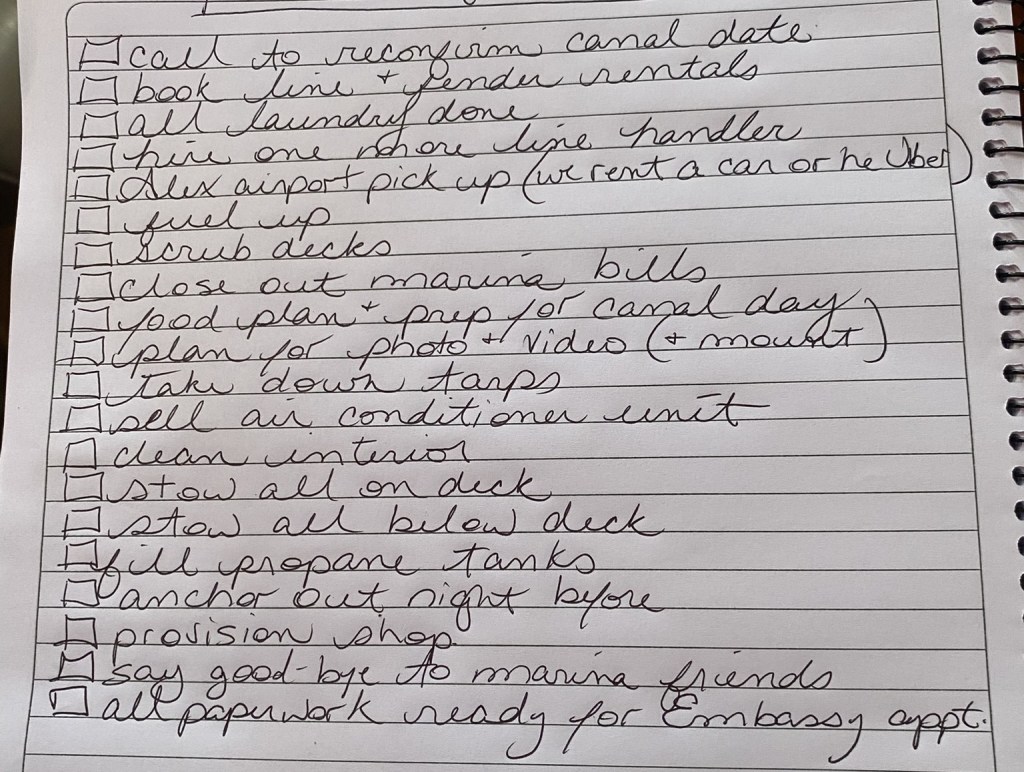 call to reconfirm canal date
book line + fender rentals
all laundry done
hire one more line handler
Alex airport pick up (we rent a car or he Uber)
fuel up
scrub decks
close out marina bills
food plan + prep for canal day
plan for photo + video (+ mount)
take down tarps
sell air conditioner unit
clean interior
stow all on deck
stow all below deck
fill propane tanks
anchor out night before
provision shop
say good-bye to marina friends
all paperwork ready for Embassy appt.